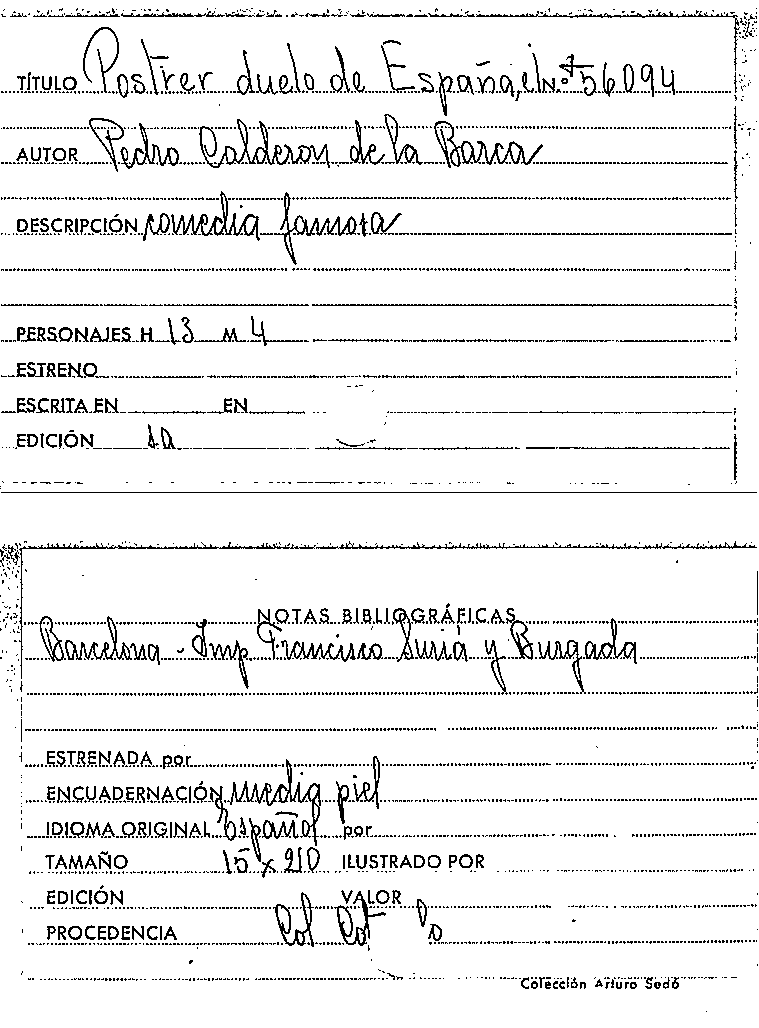 TÍTULO Postrer duelo de España, el N.º 56094
AUTOR Pedro Calderon de la Barca
DESCRIPCIÓN comedia famosa
PERSONAJES H 13 M 4
ESTRENO
ESCRITA EN EN
EDICIÓN
NOTAS BIBLIOGRÁFICAS
Barcelona - Imp Francisco Suriá y Burgada
ESTRENADA por
ENCUADERNACIÓN media piel
IDIOMA ORIGINAL Español por
TAMAÑO 15 x 210 ILUSTRADO POR
EDICIÓN VALOR
PROCEDENCIA Col Cot
Colección Arturo Sedó